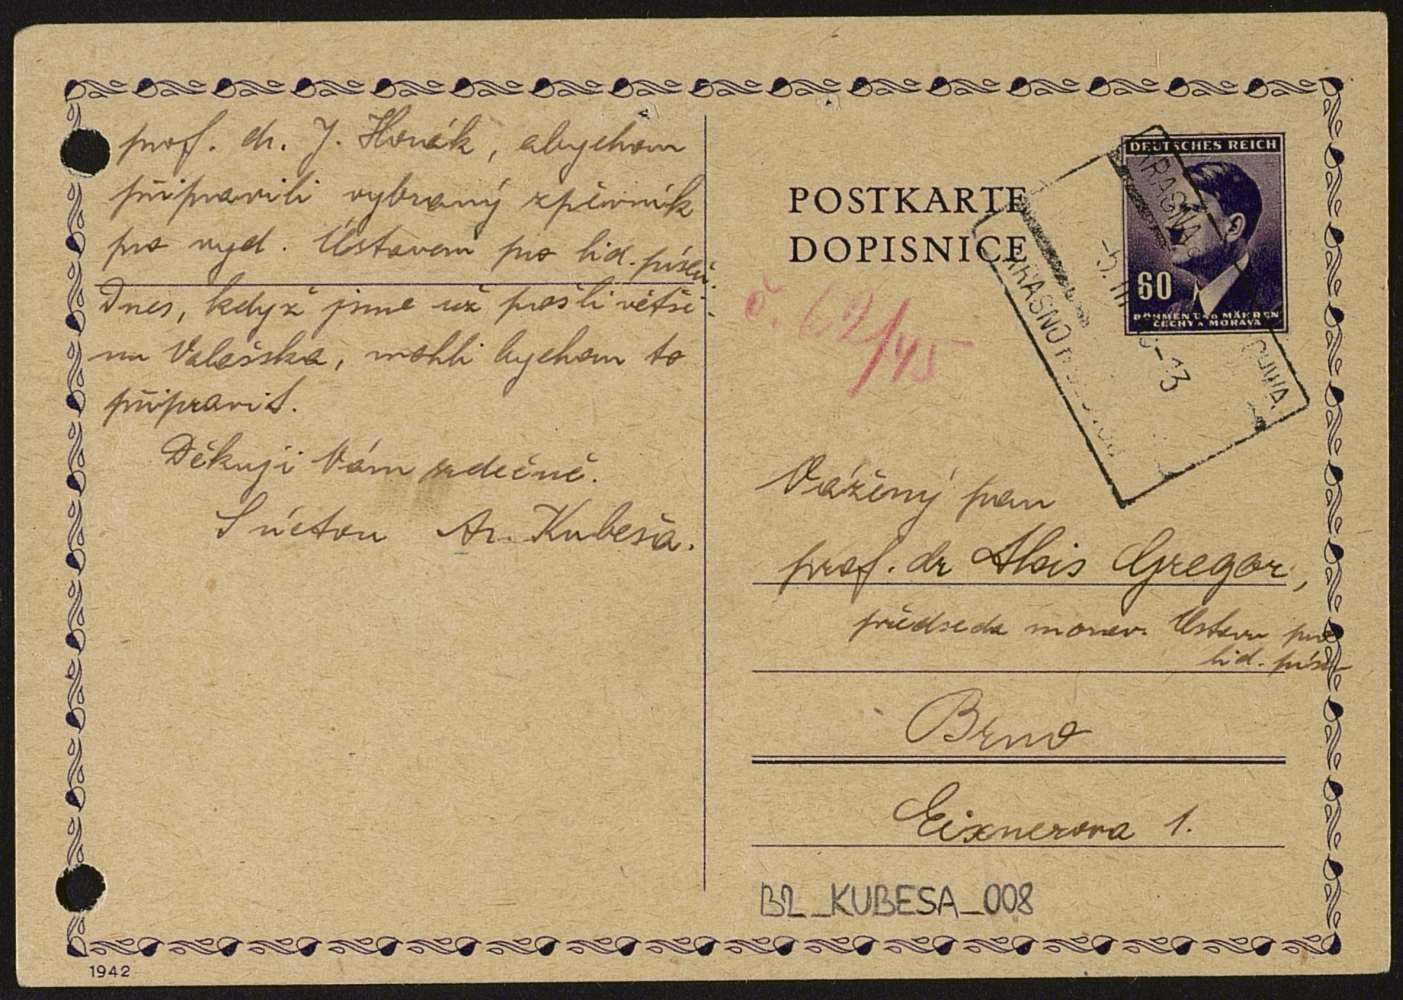 prof. dr. J. Horák, abychom
připravili vybraný zpěvník
pro vyd. Ústavem pro lid. píseň.
Dnes, když jsme už prošli větši-
nu Valašska, mohli bychom to
připravit.
Děkuji Vám srdečně.
S úctou Ar. Kubeša.
POSTKARTE
DOPISNICE
č. 62/45
DEUTSCHES REICH
60
BÖHMEN UND MÄHREN
ČECHY A MORAVA
KRASNA
-5. III
-13
KRASNO
Vážený pan
prof. dr Alois Gregor,
předseda morav. Ústavu pro
lid. píseň
Brno
Eixnerova 1.
BZ_KUBESA_008
1942